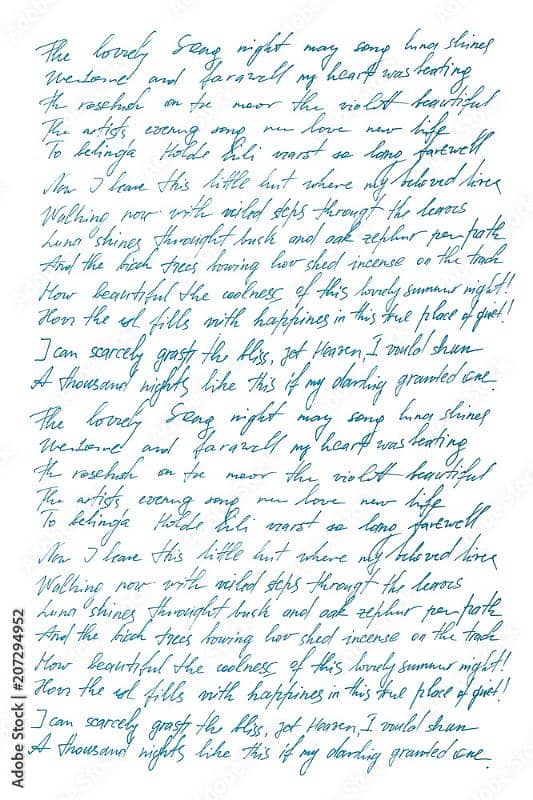 The lovely Song night may song luna shines
Welcome and farawell my heart was beating
The rosebush on the moor the violett beautiful
The artists evening song new love new life
To belinda Holde Lili warst so lang farewell
Now I leave this little hut where my beloved lives
Walking now with veiled steps throught the leaves
Luna shines throught bush and oak zephur per path
And the birch trees bowing low shed incense on the track
How beautiful the coolness of this lovely summer night!
How the sol fills with happines in this true place of quiet!
I can scarcely grasp the bliss, jet Heaven, I would shun
A thousand nights like this if my darling granted one.
The lovely Song night may song luna shines
Welcome and farawell my heart was beating
The rosebush on the moor the violett beautiful
The artists evening song new love new life
To belinda Holde Lili warst so lang farewell
Now I leave this little hut where my beloved lives
Walking now with veiled steps throught the leaves
Luna shines throught bush and oak zephur per path
And the birch trees bowing low shed incense on the track
How beautiful the coolness of this lovely summer night!
How the sol fills with happines in this true place of quiet!
I can scarcely grasp the bliss, jet Heaven, I would shun
A thousand nights like this if my darling granted one.
Adobe Stock | #207294952